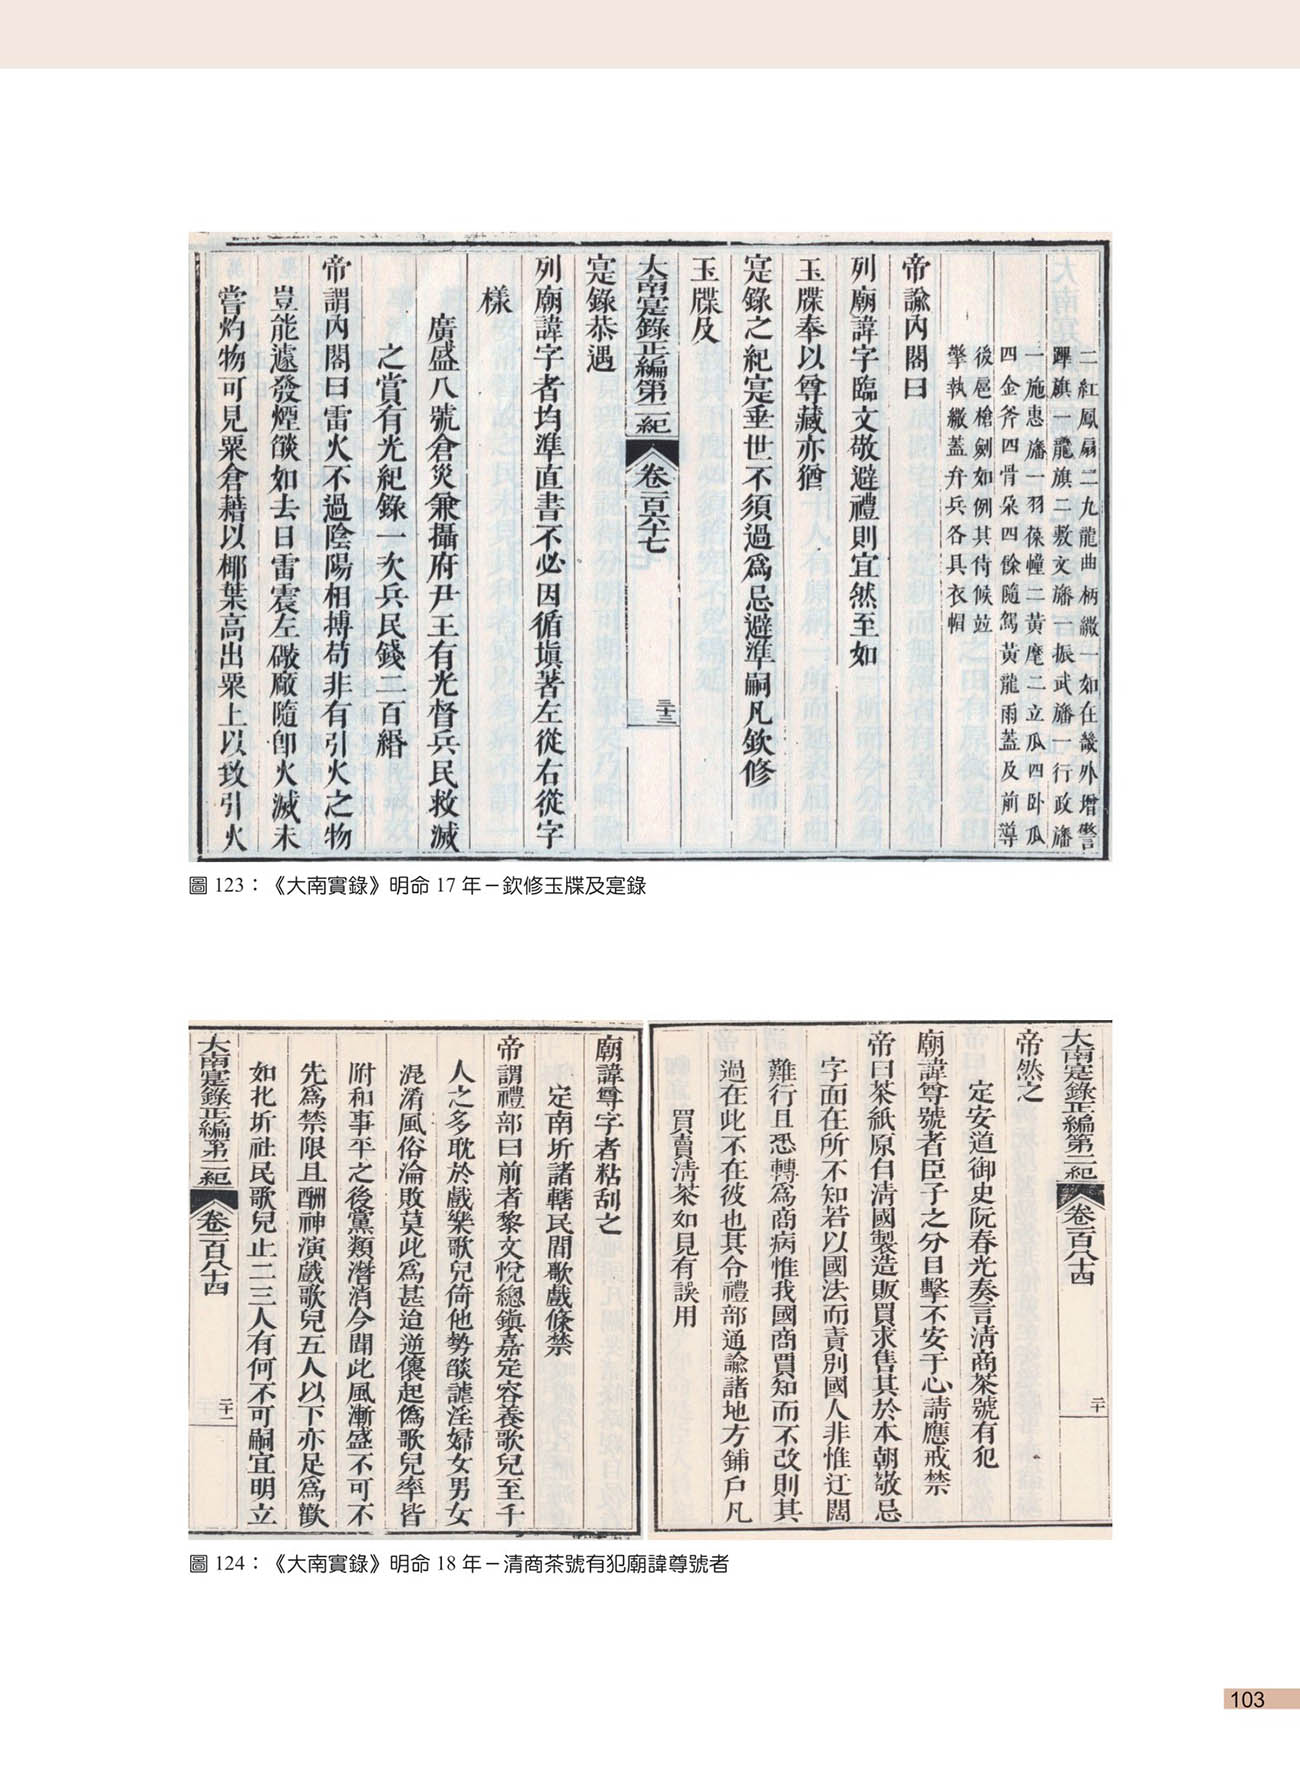 二紅鳳扇二九龍曲柄繖一如在畿外增警
蹕旗一龍旗二敷文旛一振武旛一行政旛
一施惠旛一羽葆幢二黃麾二立瓜四卧瓜
四金斧四骨朵四餘隨駕黃龍雨蓋及前導
後扈槍劍如例其待候竝
擎執繖蓋弁兵各具衣帽
帝諭內閣曰
列廟諱字臨文敬避禮則宜然至如
玉牒奉以尊藏亦猶
寔錄之紀寔垂世不須過爲忌避準嗣凡欽修
玉牒及
大南寔錄正編第二紀 卷一百六十七 三十三
寔錄恭遇
列廟諱字者均準直書不必因循塡著左從右從字
樣
廣盛八號倉災兼攝府尹王有光督兵民救滅
之賞有光紀錄一次兵民錢二百緡
帝謂內閣曰雷火不過陰陽相搏苟非有引火之物
豈能遽發煙燄如去日雷震左礮廠隨卽火滅未
嘗灼物可見粟倉藉以椰葉高出粟上以致引火
圖 123：《大南實錄》明命 17 年－欽修玉牒及寔錄
大南寔錄正編第二紀 卷一百八十四 二十
帝然之
定安道御史阮春光奏言淸商茶號有犯
廟諱尊號者臣子之分目擊不安于心請應戒禁
帝曰茶紙原自淸國製造販買求售其於本朝敬忌
字面在所不知若以國法而責別國人非惟迂闊
難行且恐轉爲商病惟我國商賈知而不改則其
過在此不在彼也其令禮部通諭諸地方鋪戶凡
買賣淸茶如見有誤用
廟諱尊字者粘刮之
定南圻諸轄民間歌戲條禁
帝謂禮部曰前者黎文悅總鎭嘉定容養歌兒至千
人之多耽於戲樂歌兒倚他勢燄謔淫婦女男女
混淆風俗淪敗莫此爲甚迨逆儴起僞歌兒率皆
附和事平之後黨類潛消今聞此風漸盛不可不
先爲禁限且酬神演戲歌兒五人以下亦足爲歡
如北圻社民歌兒止二三人有何不可嗣宜明立
大南寔錄正編第二紀 卷一百八十四 二十一
圖 124：《大南實錄》明命 18 年－清商茶號有犯廟諱尊號者
103